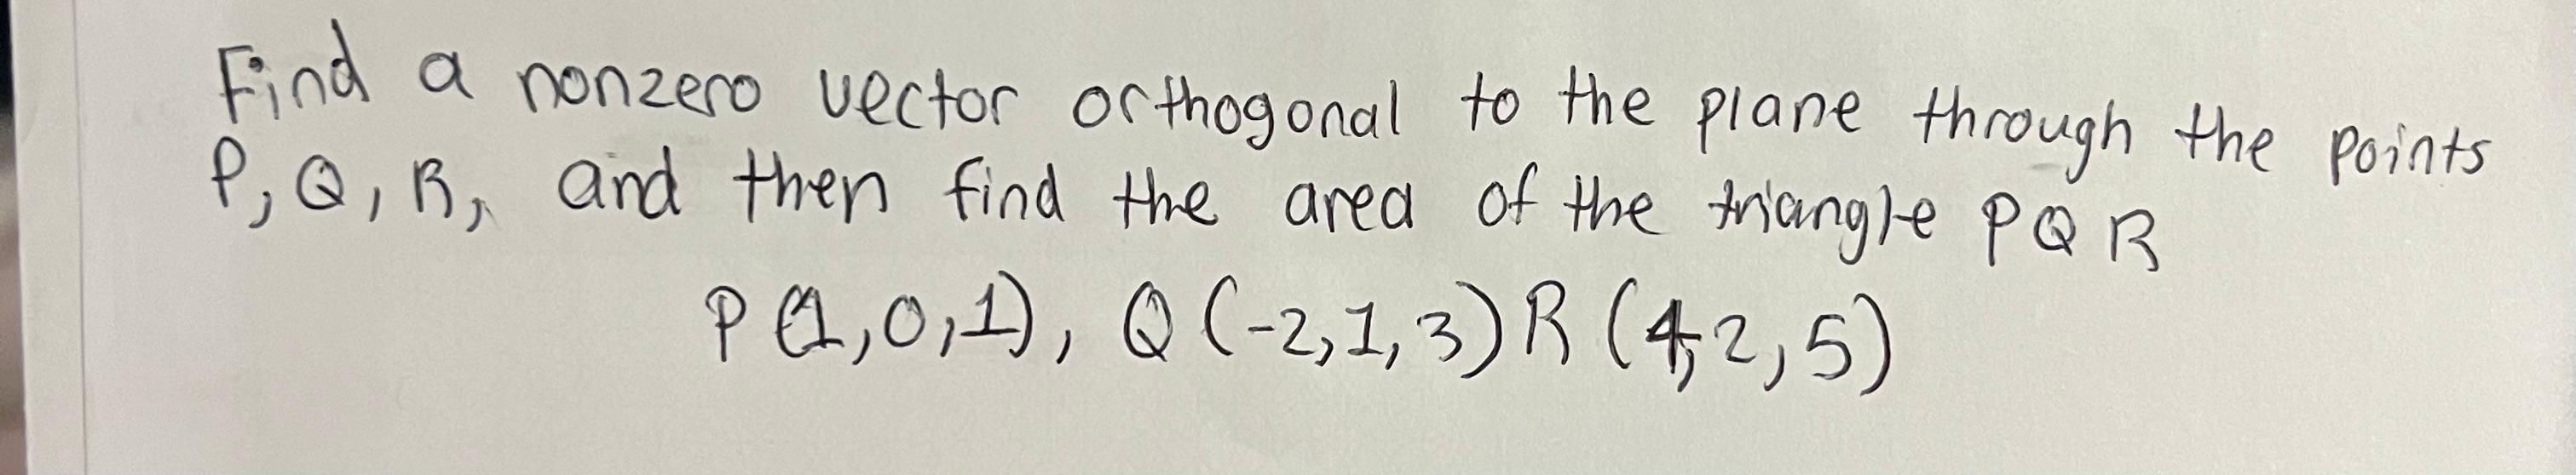 Find a nonzero vector orthogonal to the plane through the points
P, Q, R, and then find the area of the triangle PQR
P(1,0,1), Q(-2,1,3) R(4,2,5)